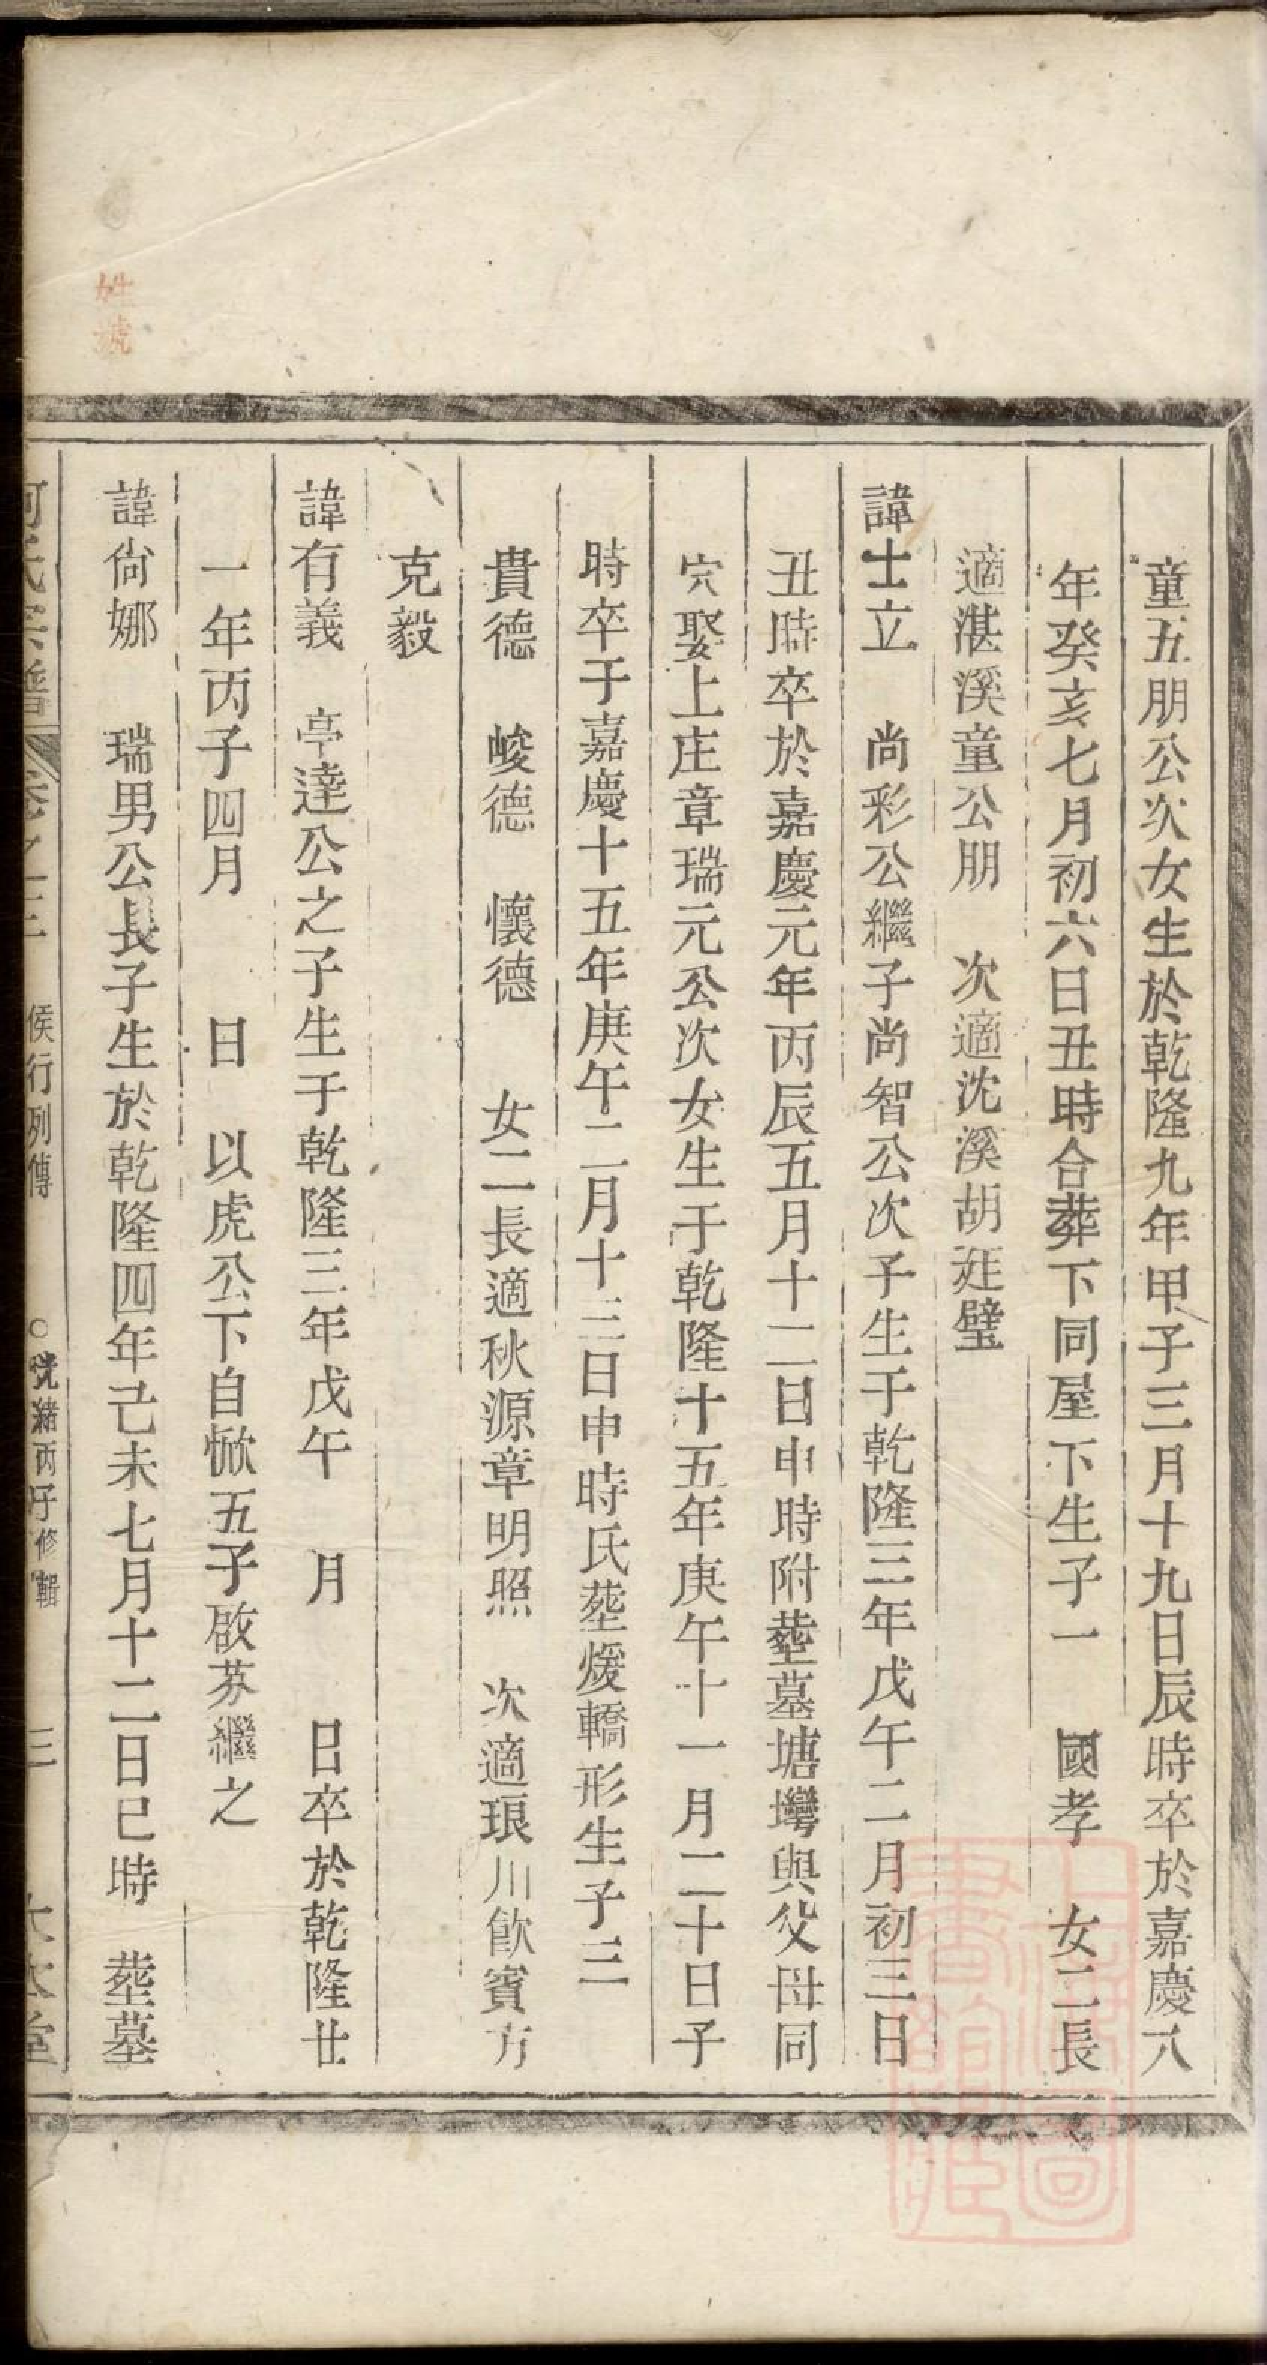 童五朋公次女生於乾隆九年甲子三月十九日辰時卒於嘉慶八
年癸亥七月初六日丑時合葬下同屋下生子一　國孝　女二長
適湛溪童公朋　次適沈溪胡廷璧
諱士立　尚彩公繼子尚智公次子生于乾隆三年戊午二月初三日
丑時卒於嘉慶元年丙辰五月十二日申時附塟墓塘塆與父母同
穴娶上庄章瑞元公次女生于乾隆十五年庚午十一月二十日子
時卒于嘉慶十五年庚午二月十三日申時氏塟煖轎形生子三
貴德　峻德　懷德　女二長適秋源章明照　次適琅川飲賓方
克毅
諱有義　亭達公之子生于乾隆三年戊午　月　日卒於乾隆廿
一年丙子四月　日　以虎公下自惞五子啟芬繼之
諱尙娜　瑞男公長子生於乾隆四年己未七月十二日巳時　塟墓
何氏宗譜　卷之三　侯行列傳　○光緒丙子修輯　三　大本堂
姓號